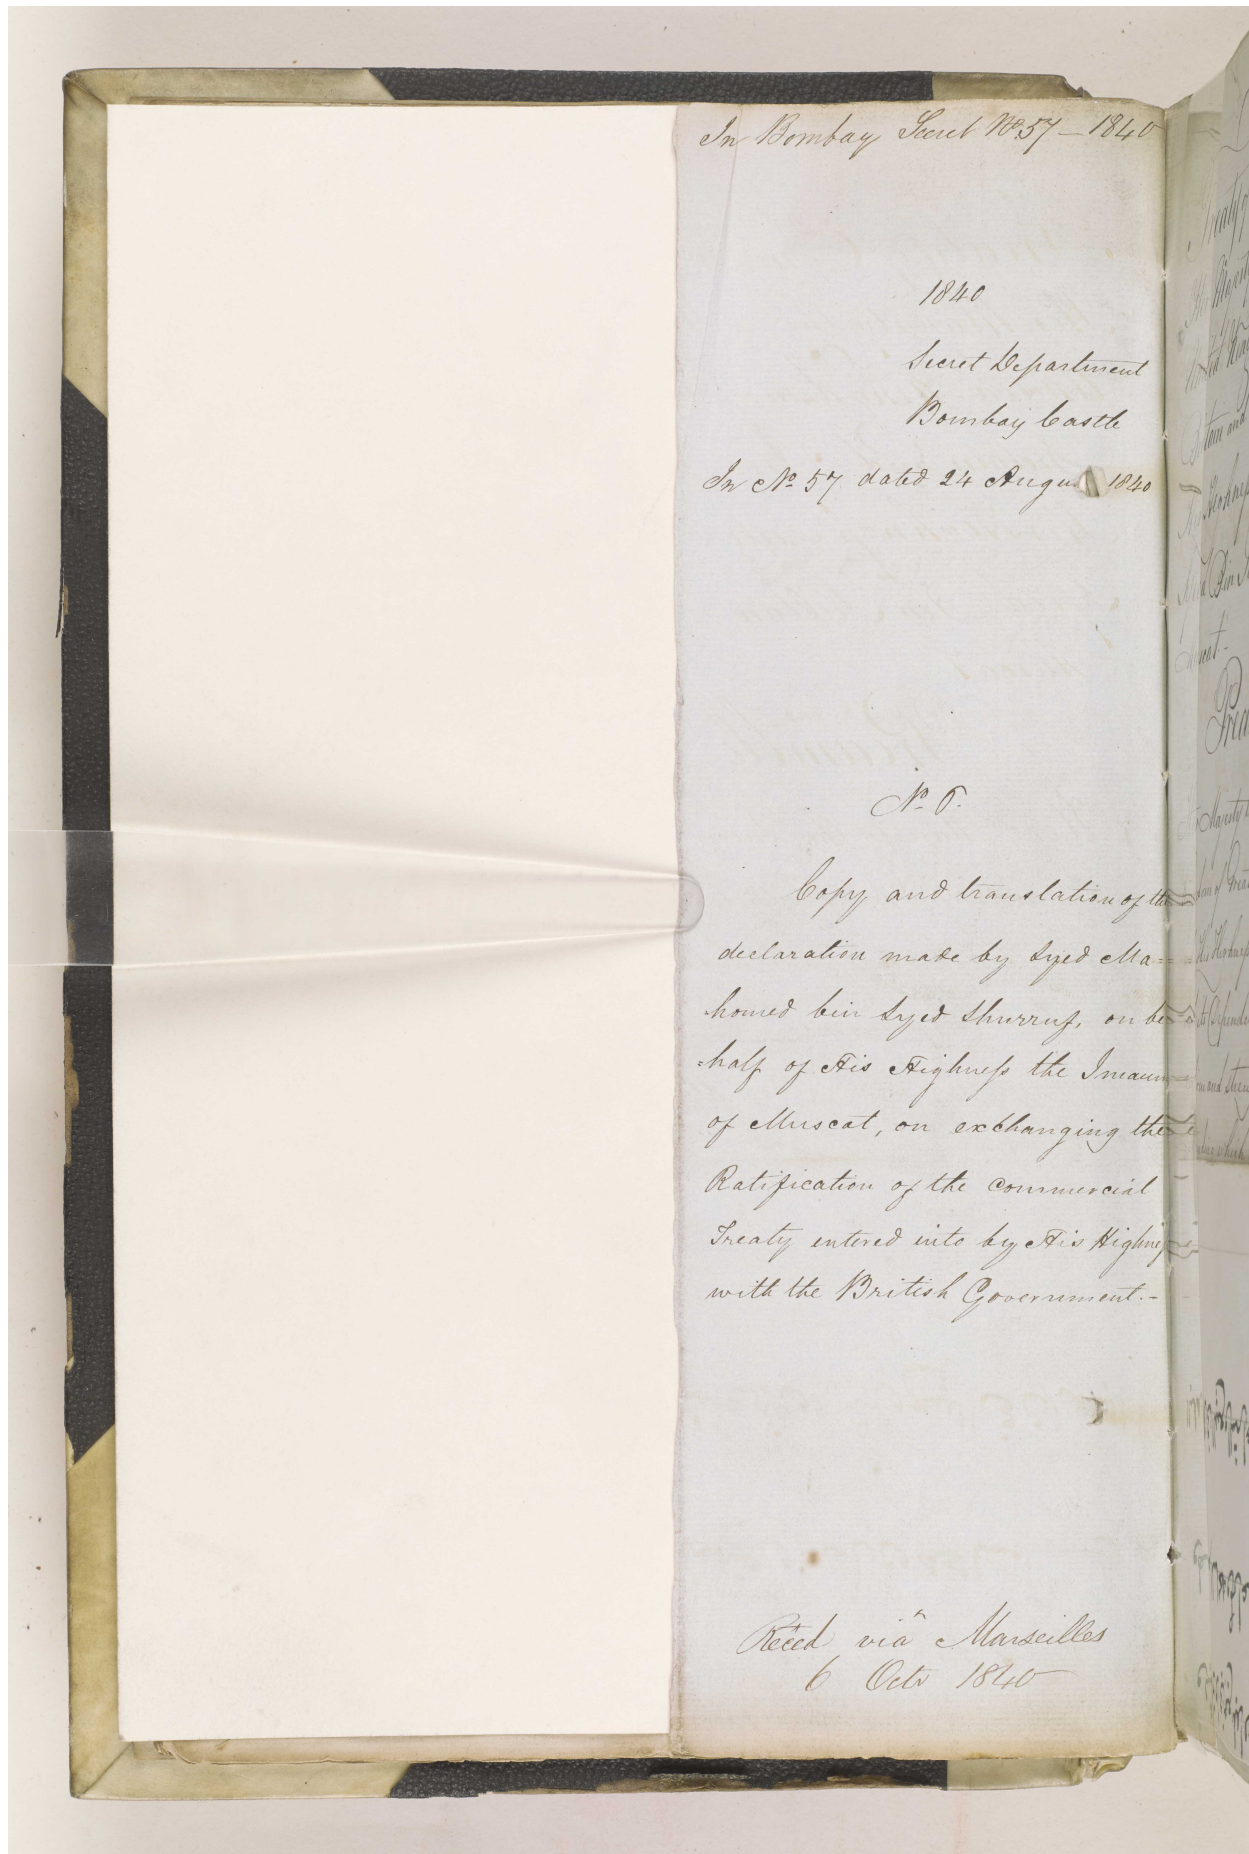 In Bombay Secret No. 57 — 1840
1840
Secret Department
Bombay Castle
In No. 57 dated 24 Augu 1840
No. 6.
Copy and translation of the
declaration made by Syed Ma=
homed bin Syed Shurruf, on be
=half of His Highness the Imaum
of Muscat, on exchanging the
Ratification of the Commercial
Treaty entered into by His Highness
with the British Government.-
Reced via Marseilles
6 Octr 1840